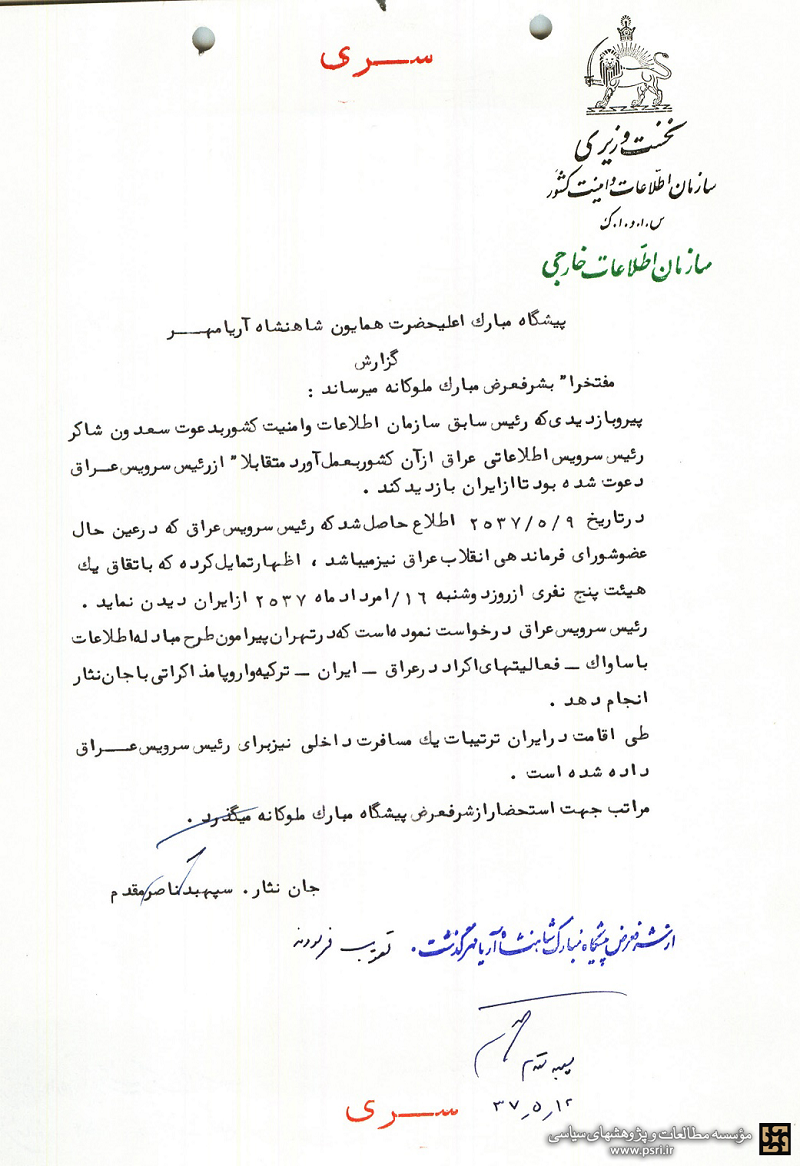 سری
نخست وزیری
سازمان اطلاعات و امنیت کشور
س.ا.و.ا.ک
سازمان اطلاعات خارجی
پیشگاه مبارک اعلیحضرت همایون شاهنشاه آریامهر
گزارش
مفتخرا" بشرفعرض مبارک ملوکانه میرساند :
پیروبازدیدی که رئیس سابق سازمان اطلاعات وامنیت کشوربدعوت سعدون شاکر
رئیس سرویس اطلاعاتی عراق ازآن کشوربعمل آورد متقابلا" ازرئیس سرویس عراق
دعوت شده بود تاازایران بازدید کند .
درتاریخ ۲۵۳۷/۵/۹ اطلاع حاصل شد که رئیس سرویس عراق که درعین حال
عضوشورای فرماندهی انقلاب عراق نیزمیباشد ، اظهارتمایل کرده که باتفاق یک
هیئت پنج نفری ازروزدوشنبه ۱۶/امردادماه ۲۵۳۷ ازایران دیدن نماید .
رئیس سرویس عراق درخواست نموده است که درتهران پیرامون طرح مبادله اطلاعات
باساواک – فعالیتهای اکراد درعراق – ایران – ترکیه واروپا مذاکراتی باجان نثار
انجام دهد .
طی اقامت درایران ترتیبات یک مسافرت داخلی نیزبرای رئیس سرویس عراق
داده شده است .
مراتب جهت استحضارازشرفعرض پیشگاه مبارک ملوکانه میگذرد .
جان نثار . سپهبد ناصرمقدم
ازشرفعرض پیشگاه مبارک شاهنشاه آریامهر گذشت . تصویب فرمودند
سپهبد مقدم
۳۷٫۵٫۱۲
سری
مؤسسه مطالعات و پژوهشهای سیاسی
www.psri.ir